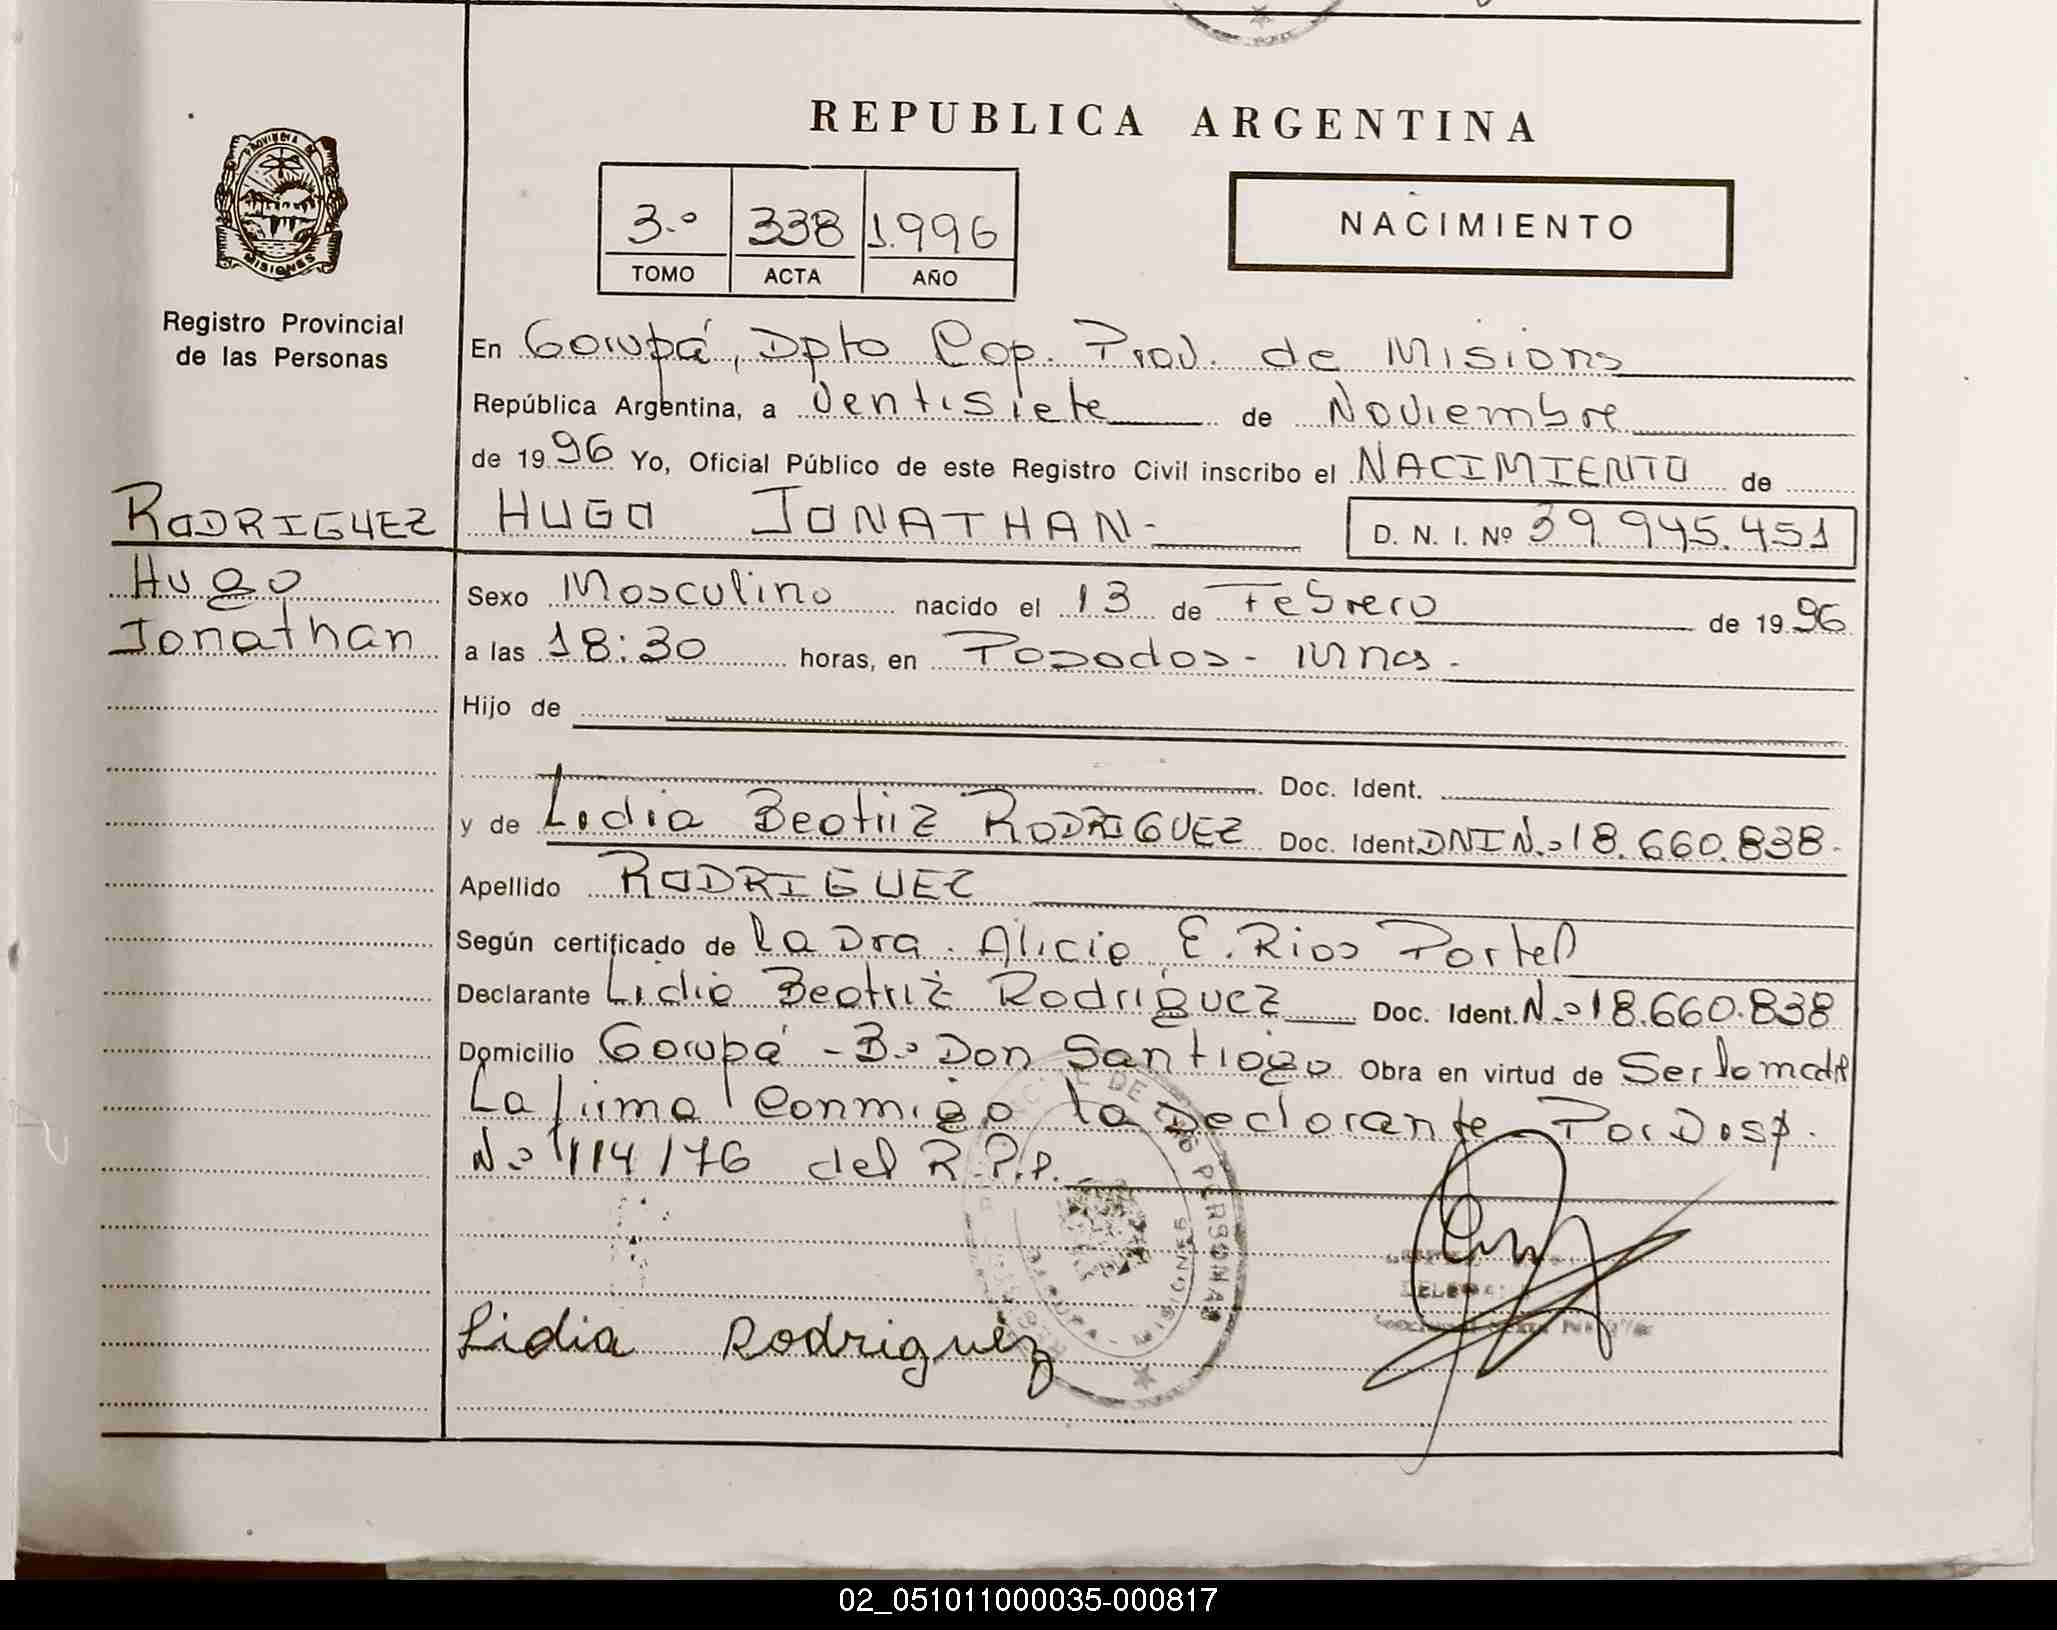 REPUBLICA ARGENTINA
PROVINCIA DE
MISIONES
3.º 338 1.996
TOMO ACTA AÑO
NACIMIENTO
Registro Provincial
de las Personas
En Garupá, Dpto Cap. Prov. de Misions
República Argentina, a Ventisiete de Noviembre
de 1996 Yo, Oficial Público de este Registro Civil inscribo el NACIMIENTO de
RODRIGUEZ HUGO JONATHAN- D. N. I. Nº 39.945.451
Hugo
Jonathan
Sexo Masculino nacido el 13 de Febrero de 1996
a las 18:30 horas, en Posadas - Mnes -
Hijo de
Doc. Ident.
y de Lidia Beatriz RODRIGUEZ Doc. Ident. DNI N.º 18.660.838-
Apellido RODRIGUEZ
Según certificado de la Dra. Alicia E. Rios Portel
Declarante Lidia Beatriz Rodriguez Doc. Ident. N.º 18.660.838
Domicilio Garupá - B.º Don Santiago Obra en virtud de Ser la madre
La firma conmigo la Declarante - Por Disp.
N.º 114/76 del R.P.P.
DE LAS PERSONAS
MISIONES
Lidia Rodriguez
02_051011000035-000817